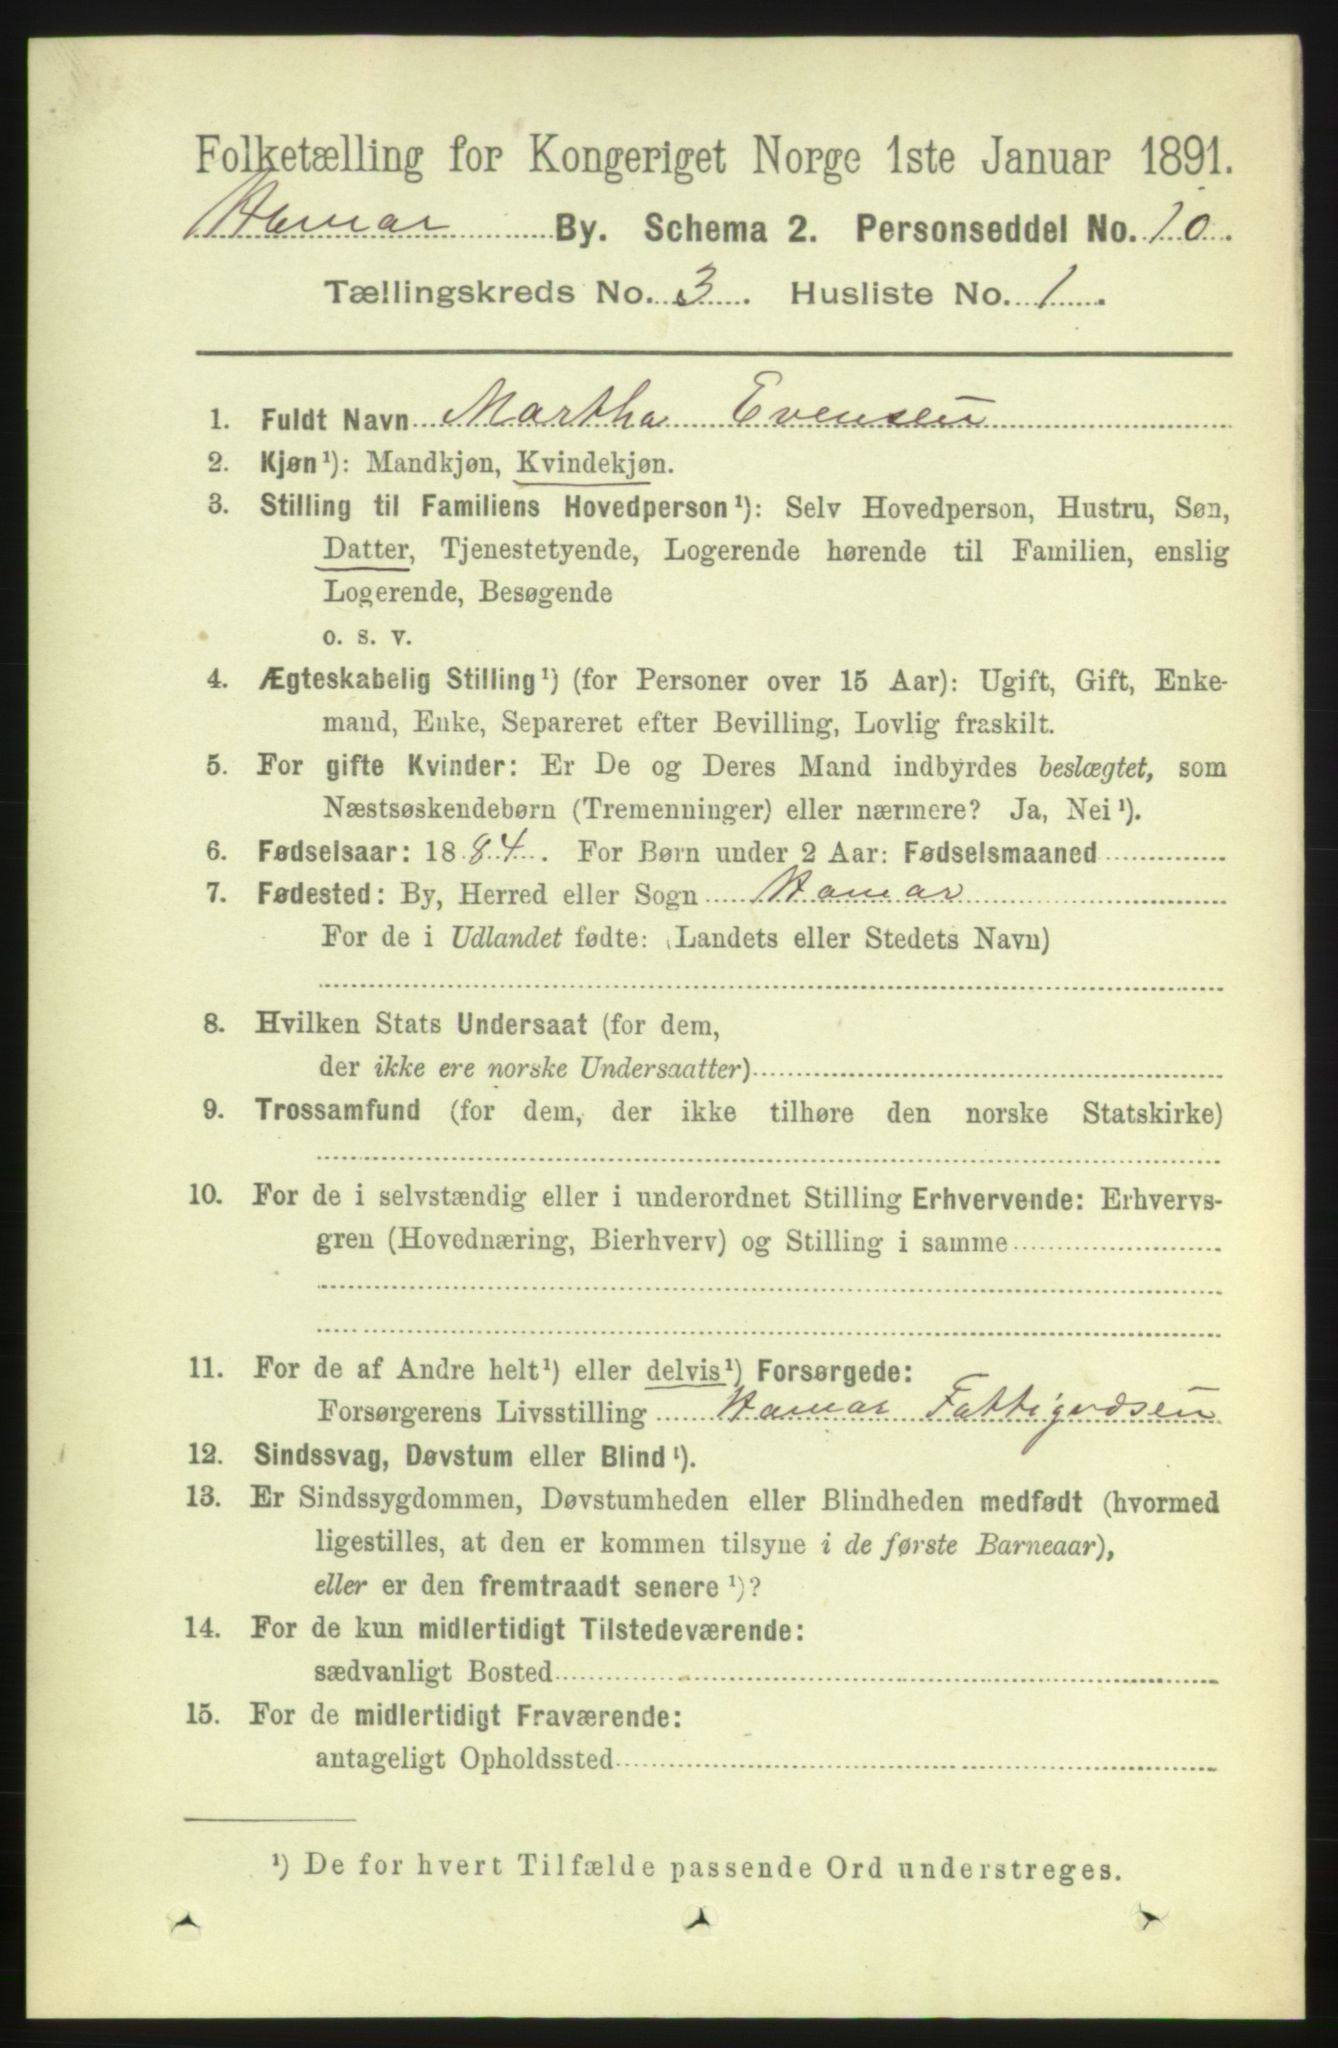 Folketælling for Kongeriget Norge 1ste Januar 1891.
Hamar By. Schema 2. Personseddel No. 10.
Tællingskreds No. 3. Husliste No. 1.
1. Fuldt Navn Martha Evensen
2. Kjøn¹): Mandkjøn, Kvindekjøn.
3. Stilling til Familiens Hovedperson¹): Selv Hovedperson, Hustru, Søn,
Datter, Tjenestetyende, Logerende hørende til Familien, enslig
Logerende, Besøgende
o. s. v.
4. Ægteskabelig Stilling¹) (for Personer over 15 Aar): Ugift, Gift, Enke-
mand, Enke, Separeret efter Bevilling, Lovlig fraskilt.
5. For gifte Kvinder: Er De og Deres Mand indbyrdes beslægtet, som
Næstsøskendebørn (Tremenninger) eller nærmere? Ja, Nei¹).
6. Fødselsaar: 1884. For Børn under 2 Aar: Fødselsmaaned
7. Fødested: By, Herred eller Sogn Hamar
For de i Udlandet fødte: (Landets eller Stedets Navn)
8. Hvilken Stats Undersaat (for dem,
der ikke ere norske Undersaatter)
9. Trossamfund (for dem, der ikke tilhøre den norske Statskirke)
10. For de i selvstændig eller i underordnet Stilling Erhvervende: Erhvervs-
gren (Hovednæring, Bierhverv) og Stilling i samme
11. For de af Andre helt¹) eller delvis¹) Forsørgede:
Forsørgerens Livsstilling Hamar
12. Sindssvag, Døvstum eller Blind¹).
13. Er Sindssygdommen, Døvstumheden eller Blindheden medfødt (hvormed
ligestilles, at den er kommen tilsyne i de første Barneaar),
eller er den fremtraadt senere¹)?
14. For de kun midlertidigt Tilstedeværende:
sædvanligt Bosted
15. For de midlertidigt Fraværende:
antageligt Opholdssted
¹) De for hvert Tilfælde passende Ord understreges.